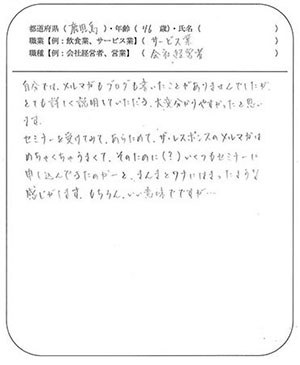 都道府県（鹿児島）・年齢（46 歳）・氏名（　　　　）
職業【例：飲食業、サービス業】（サービス業　　）
職種【例：会社経営者、営業】（会社経営者　　）
自分では、メルマガもブログも書いたことがありませんでしたが、
とても詳しく説明していただき、大変分かりやすかったと思い
ます。
セミナーを受けてみて、あらためて、ザ・レスポンスのメルマガは
めちゃくちゃうまくて、そのために（？）いくつもセミナーに
申し込んでるたのだーと、まんまとワナにはまったような
感じがします。もちろん、いい意味でですが…